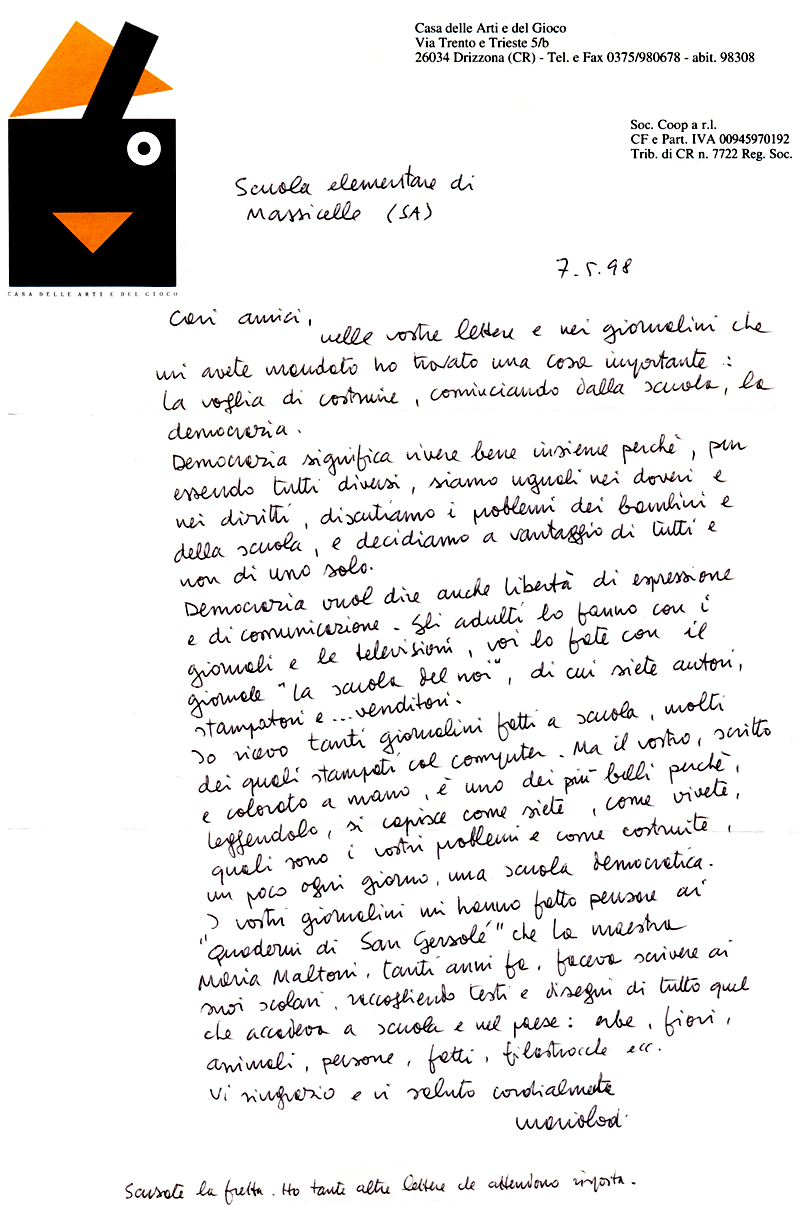 Casa delle Arti e del Gioco
Via Trento e Trieste 5/b
26034 Drizzona (CR) - Tel. e Fax 0375/980678 - abit. 98308
Soc. Coop a r.l.
CF e Part. IVA 00945970192
Trib. di CR n. 7722 Reg. Soc.
CASA DELLE ARTI E DEL GIOCO
Scuola elementare di
Massicelle (SA)
7.5.98
Cari amici,
nelle vostre lettere e nei giornalini che
mi avete mandato ho trovato una cosa importante :
la voglia di costruire, cominciando dalla scuola, la
democrazia.
Democrazia significa vivere bene insieme perchè, pur
essendo tutti diversi, siamo uguali nei doveri e
nei diritti, discutiamo i problemi dei bambini e
della scuola, e decidiamo a vantaggio di tutti e
non di uno solo.
Democrazia vuol dire anche libertà di espressione
e di comunicazione. Gli adulti lo fanno con i
giornali e le televisioni, voi lo fate con il
giornale "La scuola del noi", di cui siete autori,
stampatori e ... venditori.
Io ricevo tanti giornalini fatti a scuola, molti
dei quali stampati col computer. Ma il vostro, scritto
e colorato a mano, è uno dei più belli perchè,
leggendolo, si capisce come siete, come vivete,
quali sono i vostri problemi e come costruite,
un poco ogni giorno, una scuola democratica.
I vostri giornalini mi hanno fatto pensare ai
"Quaderni di San Gersolé" che la maestra
Maria Maltoni, tanti anni fa, faceva scrivere ai
suoi scolari, raccogliendo testi e disegni di tutto quel
che accadeva a scuola e nel paese: erbe, fiori,
animali, persone, fatti, filastrocche ecc.
Vi ringrazio e vi saluto cordialmente
Mario Lodi
Scusate la fretta. Ho tante altre lettere che attendono risposta.